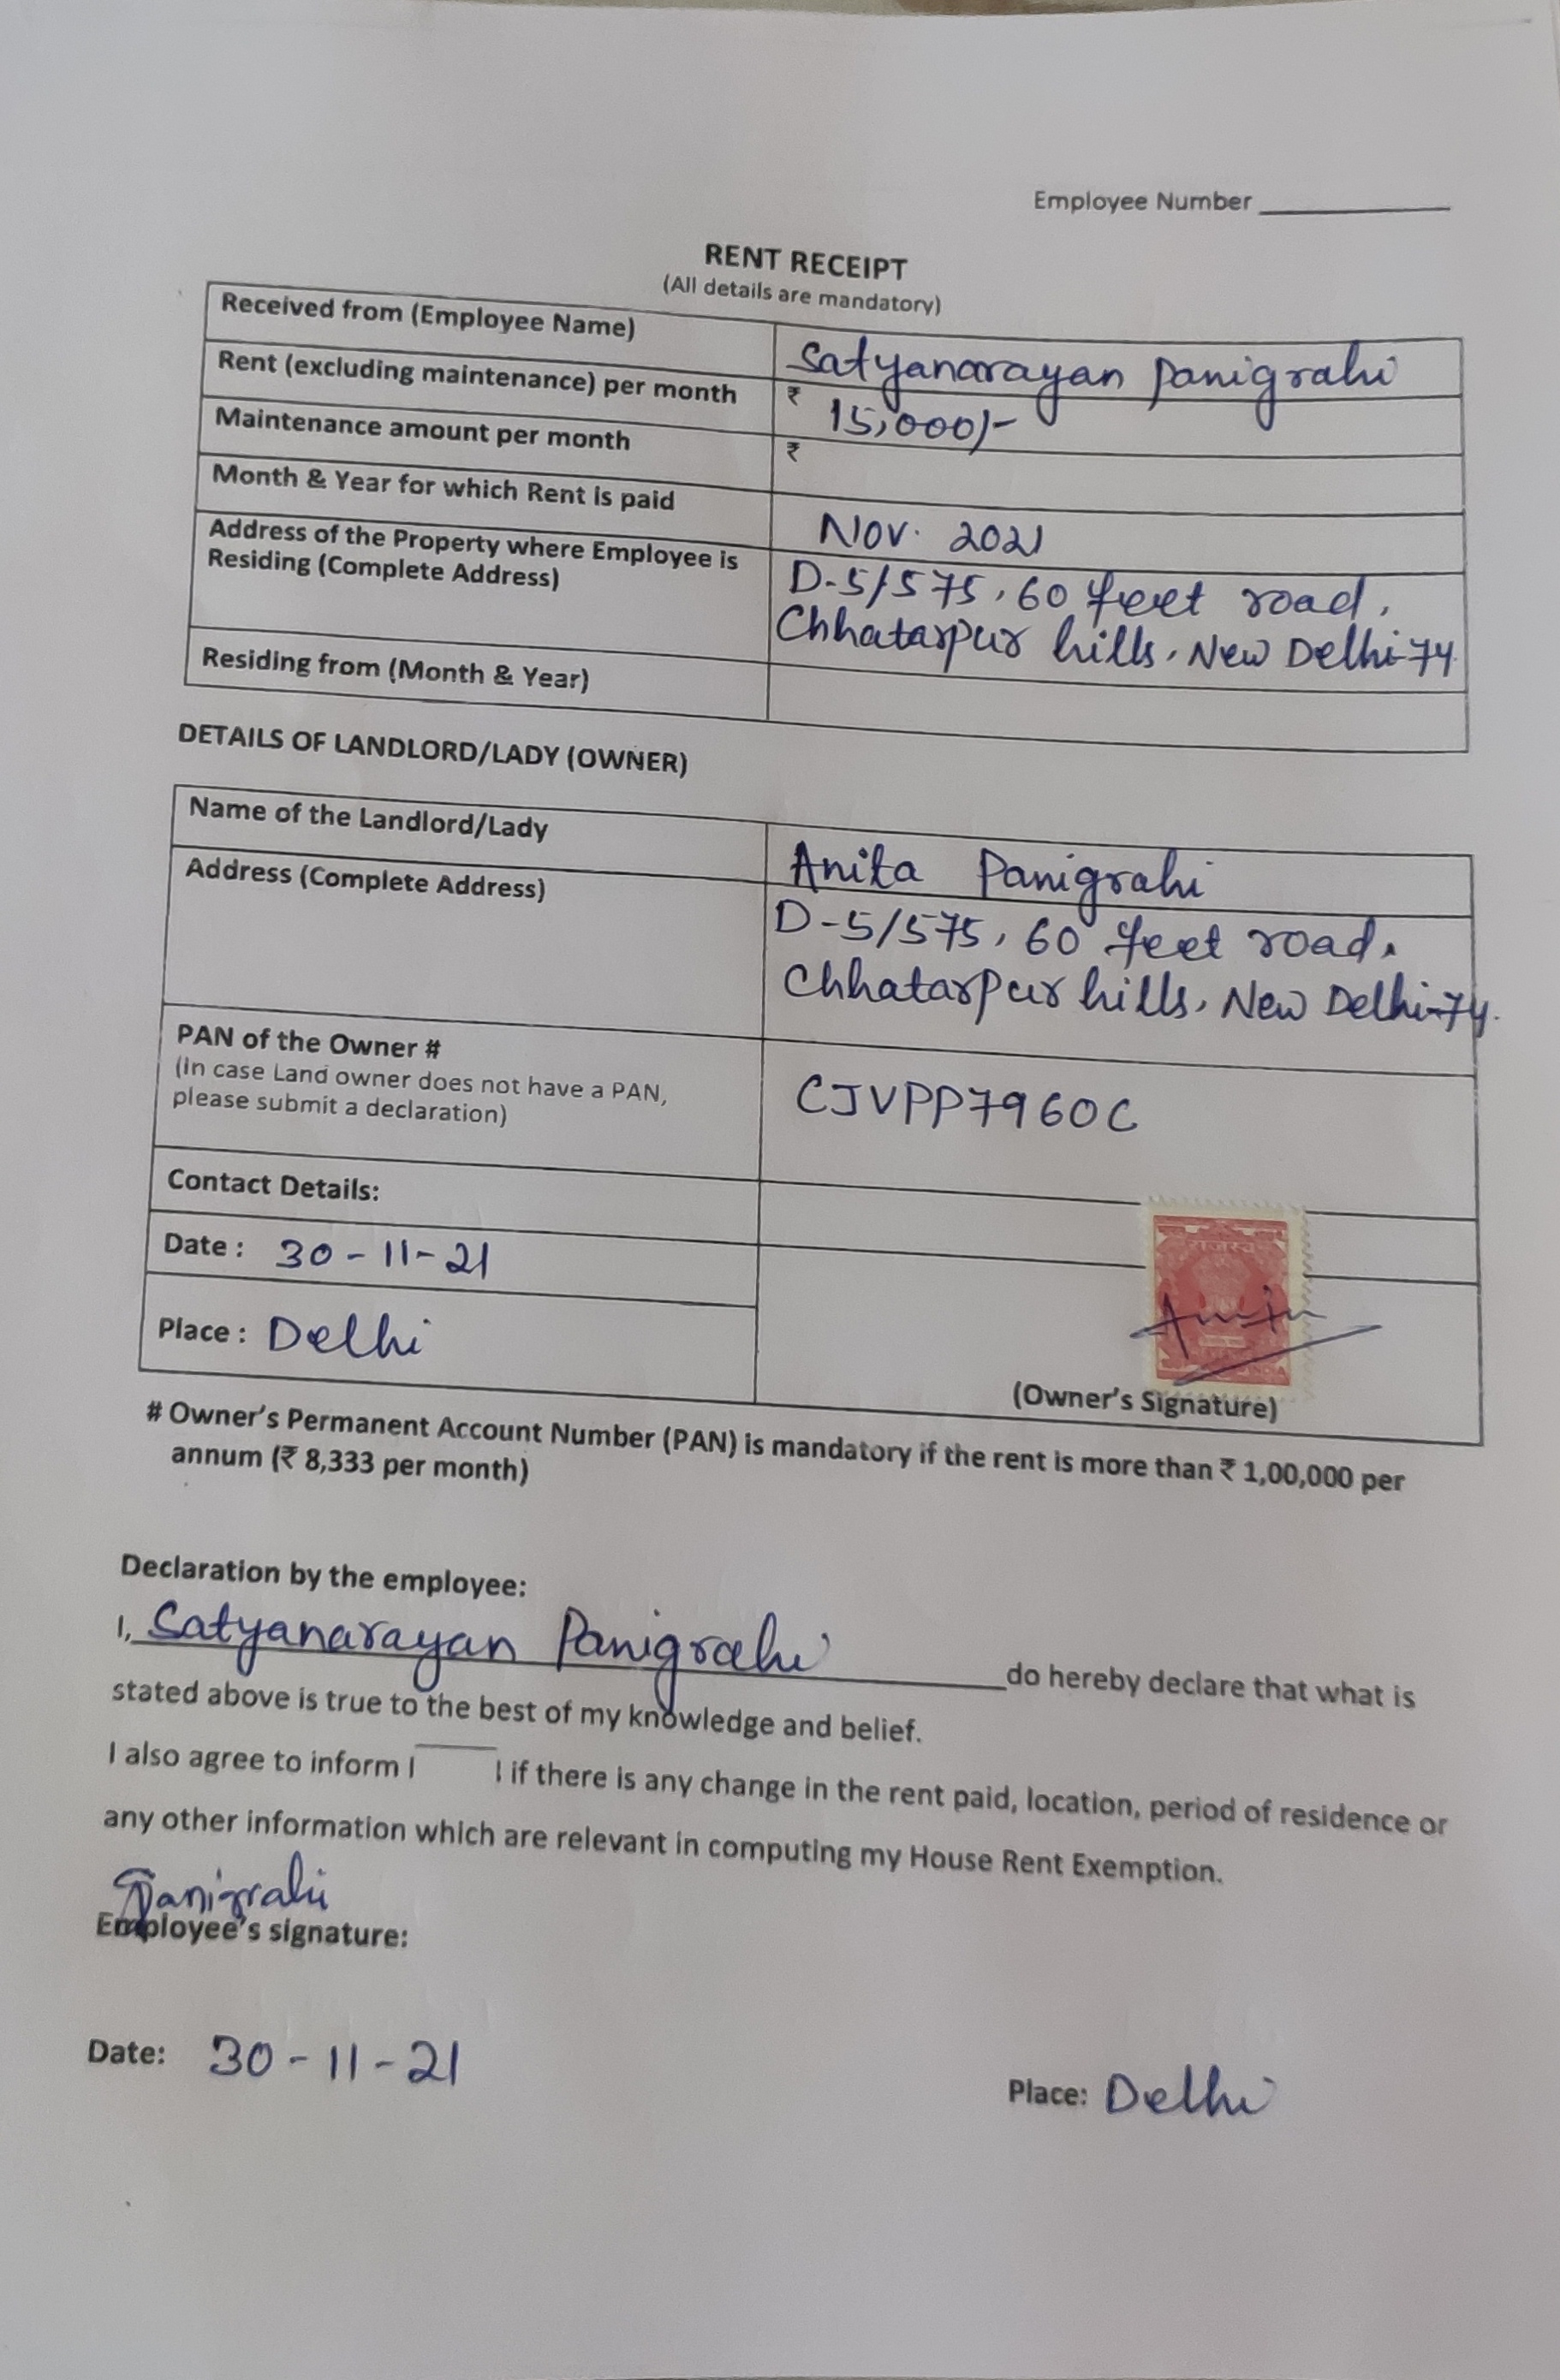 Employee Number
RENT RECEIPT
(All details are mandatory)
Received from (Employee Name) Satyanarayan Panigrahi
Rent (excluding maintenance) per month ₹ 15,000/-
Maintenance amount per month ₹
Month & Year for which Rent is paid Nov. 2021
Address of the Property where Employee is D-5/575, 60 feet road,
Residing (Complete Address) Chhatarpur hills, New Delhi-74
Residing from (Month & Year)
DETAILS OF LANDLORD/LADY (OWNER)
Name of the Landlord/Lady Anita Panigrahi
Address (Complete Address) D-5/575, 60 feet road,
Chhatarpur hills, New Delhi-74.
PAN of the Owner # CJVPP7960C
(In case Land owner does not have a PAN,
please submit a declaration)
Contact Details:
राजस्व
Date : 30-11-21
INDIA
Place : Delhi
(Owner's Signature)
# Owner's Permanent Account Number (PAN) is mandatory if the rent is more than ₹ 1,00,000 per
annum (₹ 8,333 per month)
Declaration by the employee:
I, Satyanarayan Panigrahi do hereby declare that what is
stated above is true to the best of my knowledge and belief.
I also agree to inform if there is any change in the rent paid, location, period of residence or
any other information which are relevant in computing my House Rent Exemption.
Panigrahi
Employee's signature:
Date: 30-11-21
Place: Delhi